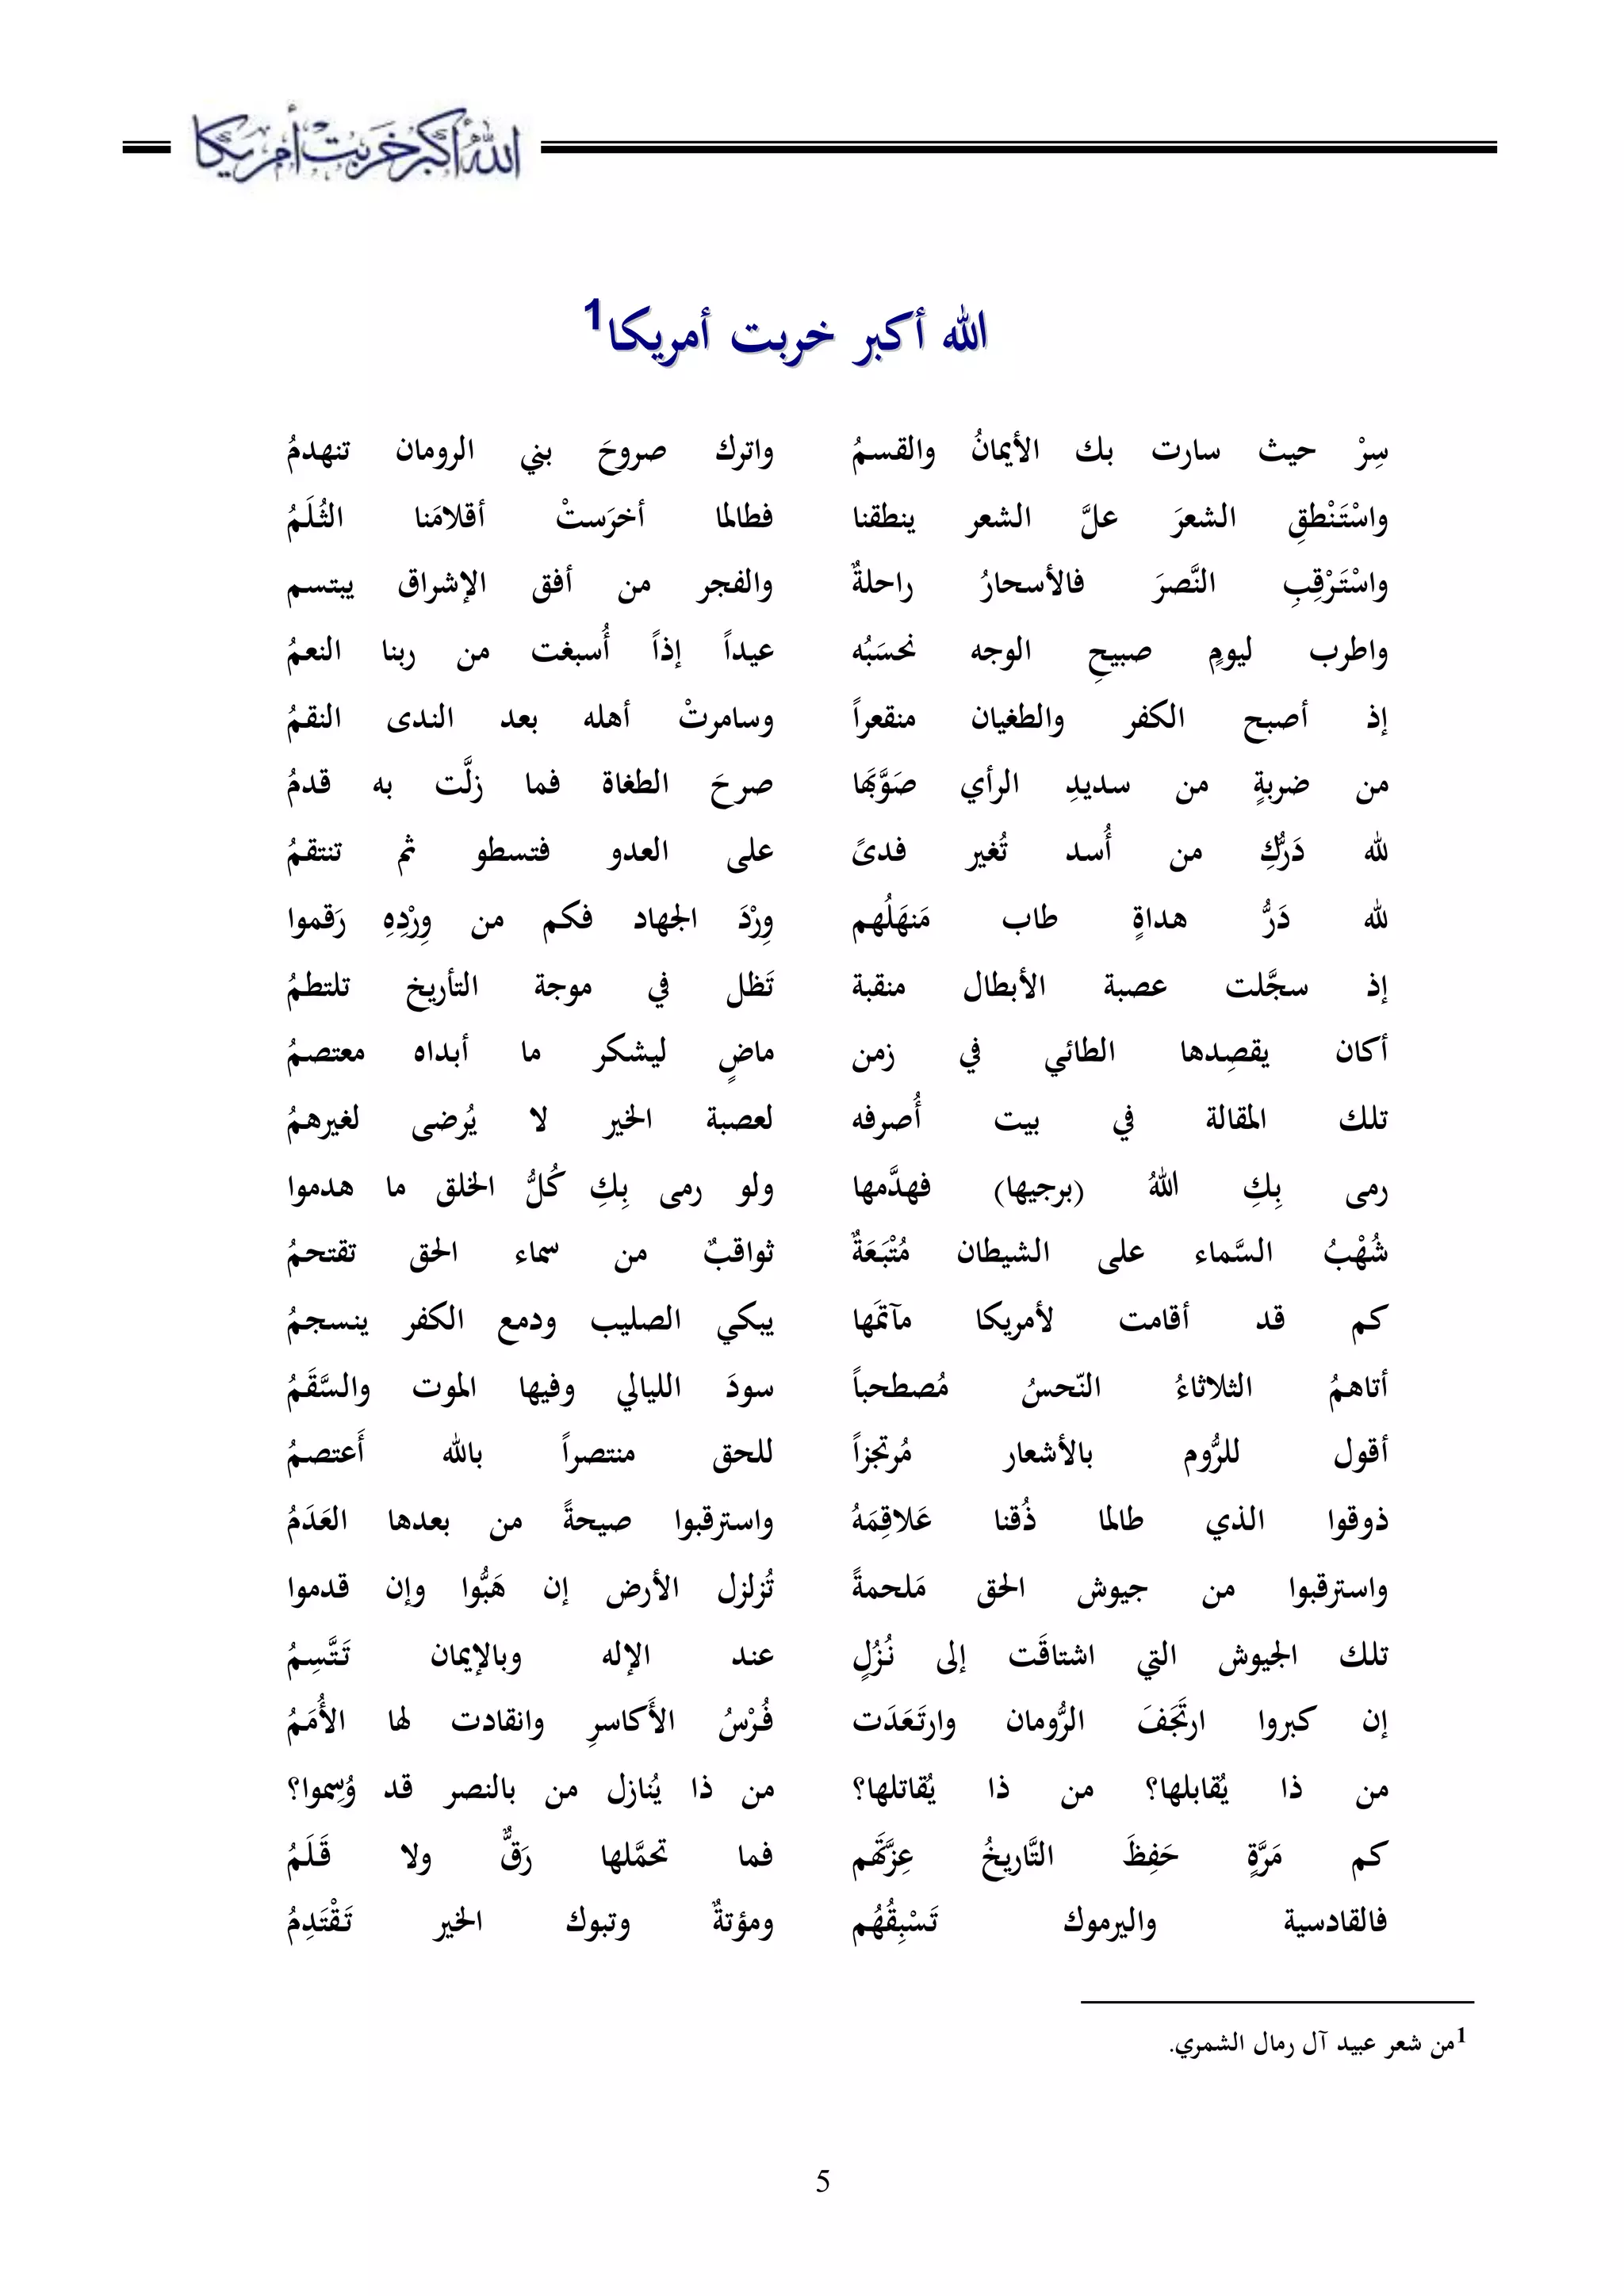 الله أكبر خربت أمريكا
الله أكبر خربت أمريكا1
سِرْ حيث سارت بك الأيمانُ والقسمُ واترك صروحَ بني الرومان تنهدمُ
واسْتَنْطقِ الشعرَ علَّ الشعر ينطقنا فطالما أخرَستْ أقلامَنا الثُلَمُ
واسْتَرْقِبِ النَّصرَ فالأسحارُ راحلةٌ والفجر من أفق الإشراق يبتسم
واطرب ليومٍ صبيحِ الوجه نحسَبُه عيداً إذاً أُسبغت من ربنا النعمُ
إذ أصبح الكفر والطغيان منقعراً وسامرتْ أهله بعد الندى النقمُ
من ضربةٍ من سديدِ الرأي صَوَّبَها صرحَ الطغاة فما زلَّت به قدمُ
لله دَرُّكِ من أُسد تُغير فدىً على العدو فتسطو ثم تنتقمُ
لله دَرُّ هداةٍ طاب مَنهَلُهم وِرْدَ الجهاد فكم من وِرْدِهِ رَقموا
إذ سجَّلت عصبة الأبطال منقبة تَظل في موجة التأريخ تلتطمُ
أكان يقصِدها الطائي في زمن ماضٍ ليشكر ما أبداه معتصمُ
تلك المقالة في بيت أُصرفه لعصبة الخير لا يُرضى لغيرهمُ
رمى بِكِ اللهُ (برجيها) فهدَّمها ولو رمى بِكِ كُلُّ الخلق ما هدموا
شُهْبُ السَّماء على الشيطان مُتْبَعَةٌ ثواقبٌ من سماء الحق تقتحمُ
كم قد أقامت لأمريكا مآتمَها يبكي الصليب ودمع الكفر ينسجمُ
أتاهمُ الثلاثاءُ النّحسُ مُصطحباً سودَ الليالي وفيها الموت والسَّقَمُ
أقول للرُّوم بالأشعار مُرتجزاً للحق منتصراً بالله أَعتصمُ
ذوقوا الذي طالما ذُقنا عَلاقِمَهُ واسترقبوا صيحةً من بعدها العَدَمُ
واسترقبوا من جيوش الحق مَلحمةً تُزلزل الأرض إن هَبُّوا وإن قدموا
تلك الجيوش التي اشتاقَت إلى نُزُلٍ عند الإله وبالإيمان تَتَّسِمُ
إن كبروا ارتجَفَ الرُّومان وارتَعَدَت فُرْسُ الأَكاسرِ وانقادت لها الأُمَمُ
من ذا يُقابلها؟ من ذا يُقاتلها؟ من ذا يُنازل من بالنصر قد وُسِموا؟
كم مَرَّةٍ حَفِظَ التَّاريخُ عِزَّتَهم فما تحمَّلها رَقٌّ ولا قَلَمُ
فالقادسية واليرموك تَسْبِقُهُم ومؤتةٌ وتبوك الخير تَقْتَدِمُ
1من شعر عبيد آل رمال الشمري.
5